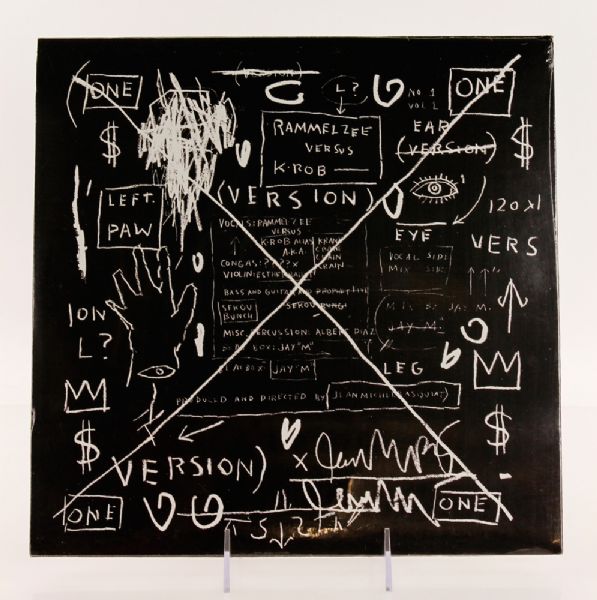 (ONE
(VERSION)
L?
NO 1
VOL 2
ONE
$
RAMMELZEE
VERSUS
K-ROB
EAR
(VERSION)
$
LEFT.
PAW
(VERSION)
120 x1
VOCALS: RAMMELZEE
VERSUS
K-ROB ALIAS
A.K.A.
CONGAS: ????x
VIOLIN:
EYE
VERS
VOCAL SIDE
MIX SIDE
BASS AND GUITAR AND
SEKOU
BUNCH
SEKOU BUNCH
ION
L?
MISC. PERCUSSION: ALBERT DIAZ
BEAT BOX: JAY "M"
JAY M.
JAY M.
BEATBOX: JAY "M"
LEG
PRODUCED AND DIRECTED BY JEAN MICHEL BASQUIAT)
$
$
VERSION)
x
ONE
ONE